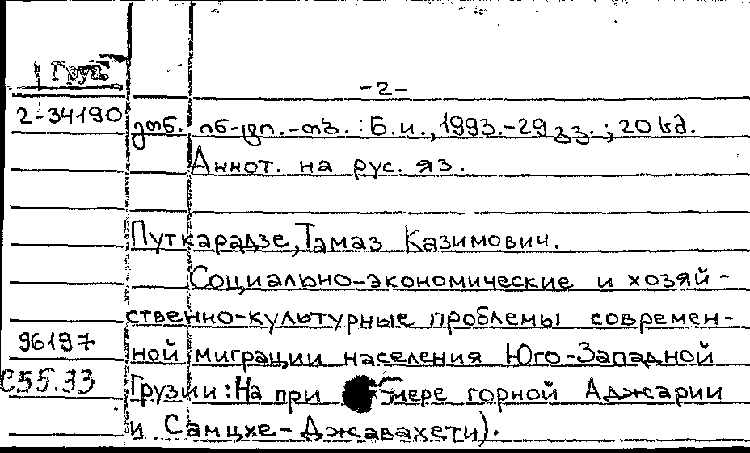 Груз.
-2-
2-34190
ეთნ. ინ-ტი.-თბ.: Б.и., 1993.-29 გვ.; 20 სმ.
Аннот. на рус. яз.
Путкарадзе, Тамаз Казимович.
Социально-экономические и хозяй-
ственно-культурные проблемы современ-
96197 ной миграции населения Юго-Западной
С55.33 Грузии: На примере горной Аджарии
и Самцхе-Джавахети).